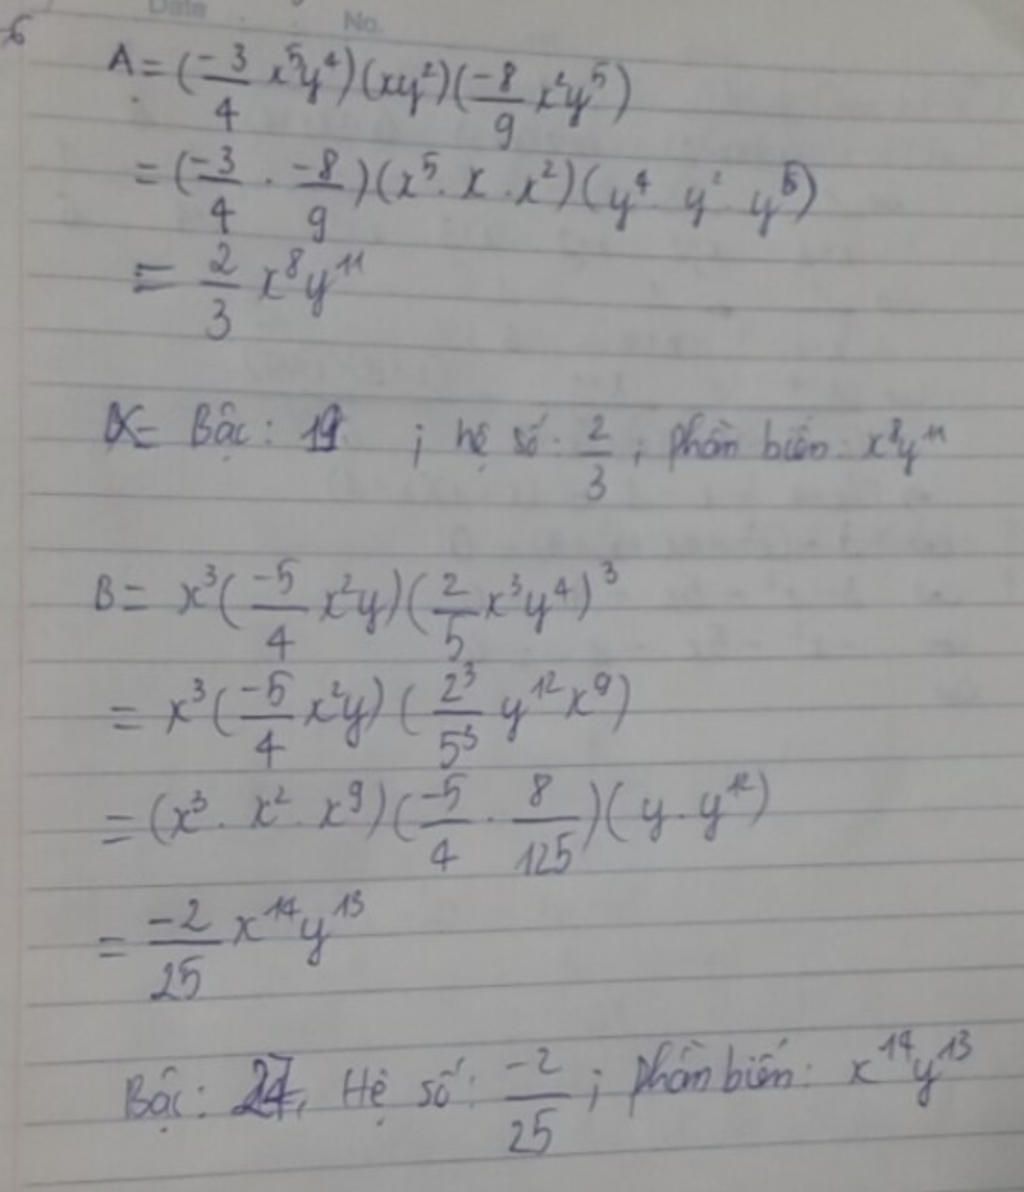 Date No.
6
A = (-3/4 x⁵y⁴)(xy²)(-8/9 x²y⁵)
= (-3/4 . -8/9)(x⁵. x . x²)(y⁴. y² . y⁵)
= 2/3 x⁸y¹¹
Bậc: 19 ; hệ số: 2/3 ; phần biến: x⁸y¹¹
B = x³(-5/4 x²y)(2/5 x³y⁴)³
= x³(-5/4 x²y)(2³/5³ y¹²x⁹)
= (x³. x² . x⁹)(-5/4 . 8/125)(y . y¹²)
= -2/25 x¹⁴y¹³
Bậc: 27, Hệ số: -2/25 ; phần biến: x¹⁴y¹³